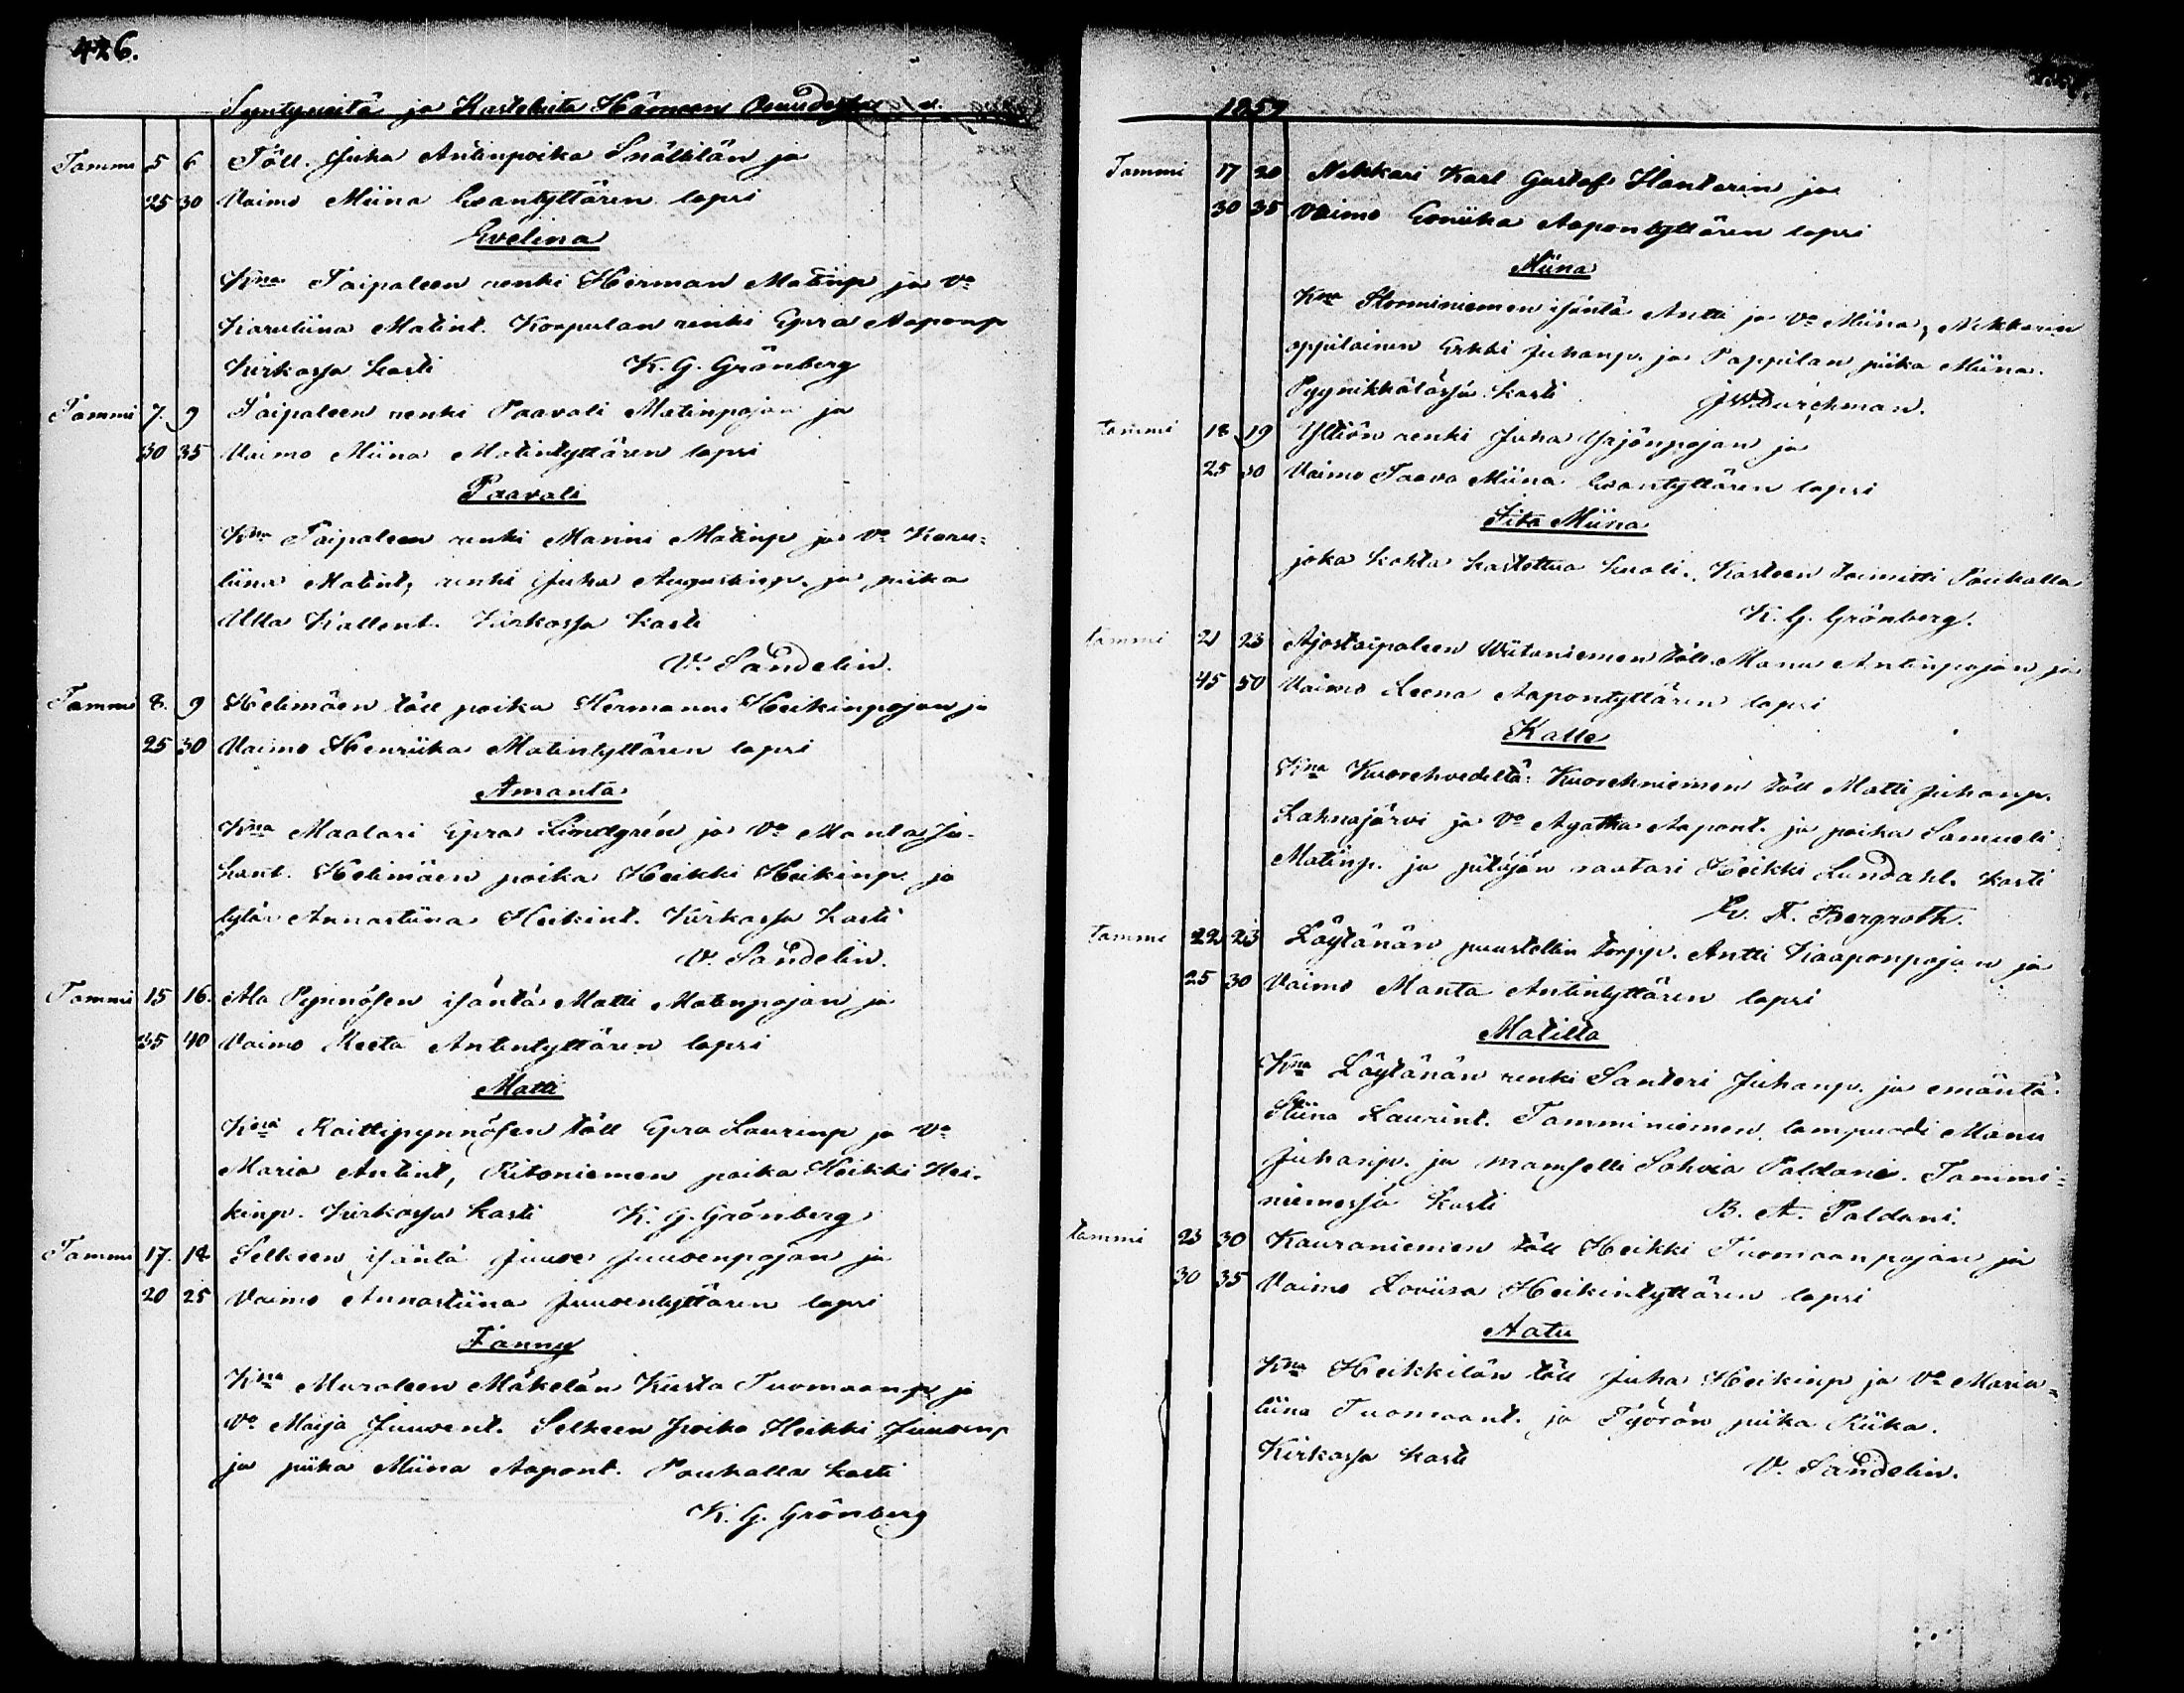 426.
Syntyneitä ja Kasteluita Hämeen v.
Tammi 5 6 Töll. Juha Antinpoika Snälkilän ja
25 30 Vaimo Miina Esantyttären lapsi
Evelina
Kna Taipaleen renki Herman Matinp ja Vo
Karuliina Matint. Korpulan renki Epra Aaponp
kirkossa kasti K. G. Grönberg
Tammi 7. 9 Taipaleen renki Paavali Matinpojan ja
30 35 Vaimo Miina Matintyttären lapsi
Paavali
Kna Taipaleen renki Manni Matinp ja Vo Karu=
liina Matint, renki Juha Augustinp. ja piika
Ulla Kallent. Kirkossa kasti
V. Sandelin.
Tammi 8. 9 Helimäen töll poika Hermanni Heikinpojan ja
25 30 Vaimo Henriika Matintyttären lapsi
Amanta
Kna Maalari Epra Lindgrén ja Vo Manta Ju-
hant. Helimäen poika Heikki Heikinp. ja
tytär Annastiina Heikint. Kirkossa kasti
V. Sandelin.
Tammi 15 16. Ala Pynnösen isäntä Matti Matinpojan ja
35 40 Vaimo Reeta Antintyttären lapsi
Matti
Kna Raittipynnösen töll Epra Laurinp ja Vo
Maria Antint, Ritoniemen poika Heikki Hei-
kinp. Kirkossa kasti K. G. Grönberg
Tammi 17. 18 Selkeen isäntä Juuse Juusenpojan ja
20 25 Vaimo Annastiina Juusentyttären lapsi
Fanny
Kna Muroleen Mäkelän Kusta Tuomaanp ja
Vo Maija Juusent. Selkeen poika Heikki Juusenp
ja piika Miina Aapont. Pouhalla kasti
K. G. Grönberg
1859
Tammi 17 20 Nikkari Karl Gustaf Slanterin ja
30 35 Vaimo Eeniika Aapontyttären lapsi
Miina
Kna Storminiemen isäntä Antti ja Vo Miina, Nikkarin
oppilainen Erkki Juhanp. ja Pappilan piika Miina.
Pyynikkälässä kasti J. W. Durchman.
tammi 18 19 Yltiön renki Juha Yrjönpojan ja
25 30 Vaimo Taava Miina Esantyttären lapsi
Fita Miina
joka kohta kastettua kuoli. Kasteen toimitti Pouhalla
K. G. Grönberg.
tammi 21 23 Ajostaipaleen Wiitaniemen töll. Manu Antinpojan ja
45 50 Vaimo Leena Aapontyttären lapsi
Kalle
Kna Kuorehvedeltä: Kuorehniemen töll Matti Juhanp.
Lahnajärvi ja Vo Agatha Aapont. ja poika Samueli
Matinp. ja pitäjän raatari Heikki Lundahl. kasti
Ev. F. Bergroth.
tammi 22 23 Löytänän puustellin torpp. Antti Kaaponpojan ja
25 30 Vaimo Manta Antintyttären lapsi
Matilta
Kna Löytänän renki Santeri Juhanp. ja emäntä
Stiina Laurint. Tamminiemen lampuodi Manu
Juhanp. ja mamselli Sohvia Paldani. Tammi=
niemessä kasti B. A. Paldani.
tammi 23 30 Kauraniemen töll Heikki Tuomaanpojan ja
30 35 Vaimo Loviisa Heikintyttären lapsi
Aatu
Kna Heikkilän töll Juha Heikinp ja Vo Maria=
liina Tuomaant. ja Työrön piika Riika.
Kirkossa kasti V. Sandelin.